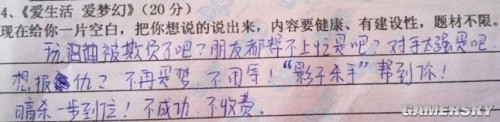 4、《爱生活 爱梦幻》(20分)
现在给你一片空白，把你想说的说出来，内容要健康、有建设性，题材不限。
玩酒曲被欺负了吧？朋友都帮不上忙是吧？对手太强是吧
想报仇？不再是梦，不用等！“影子杀手”帮到你！
暗杀一步到位！不成功，不收费。
GAMERSKY